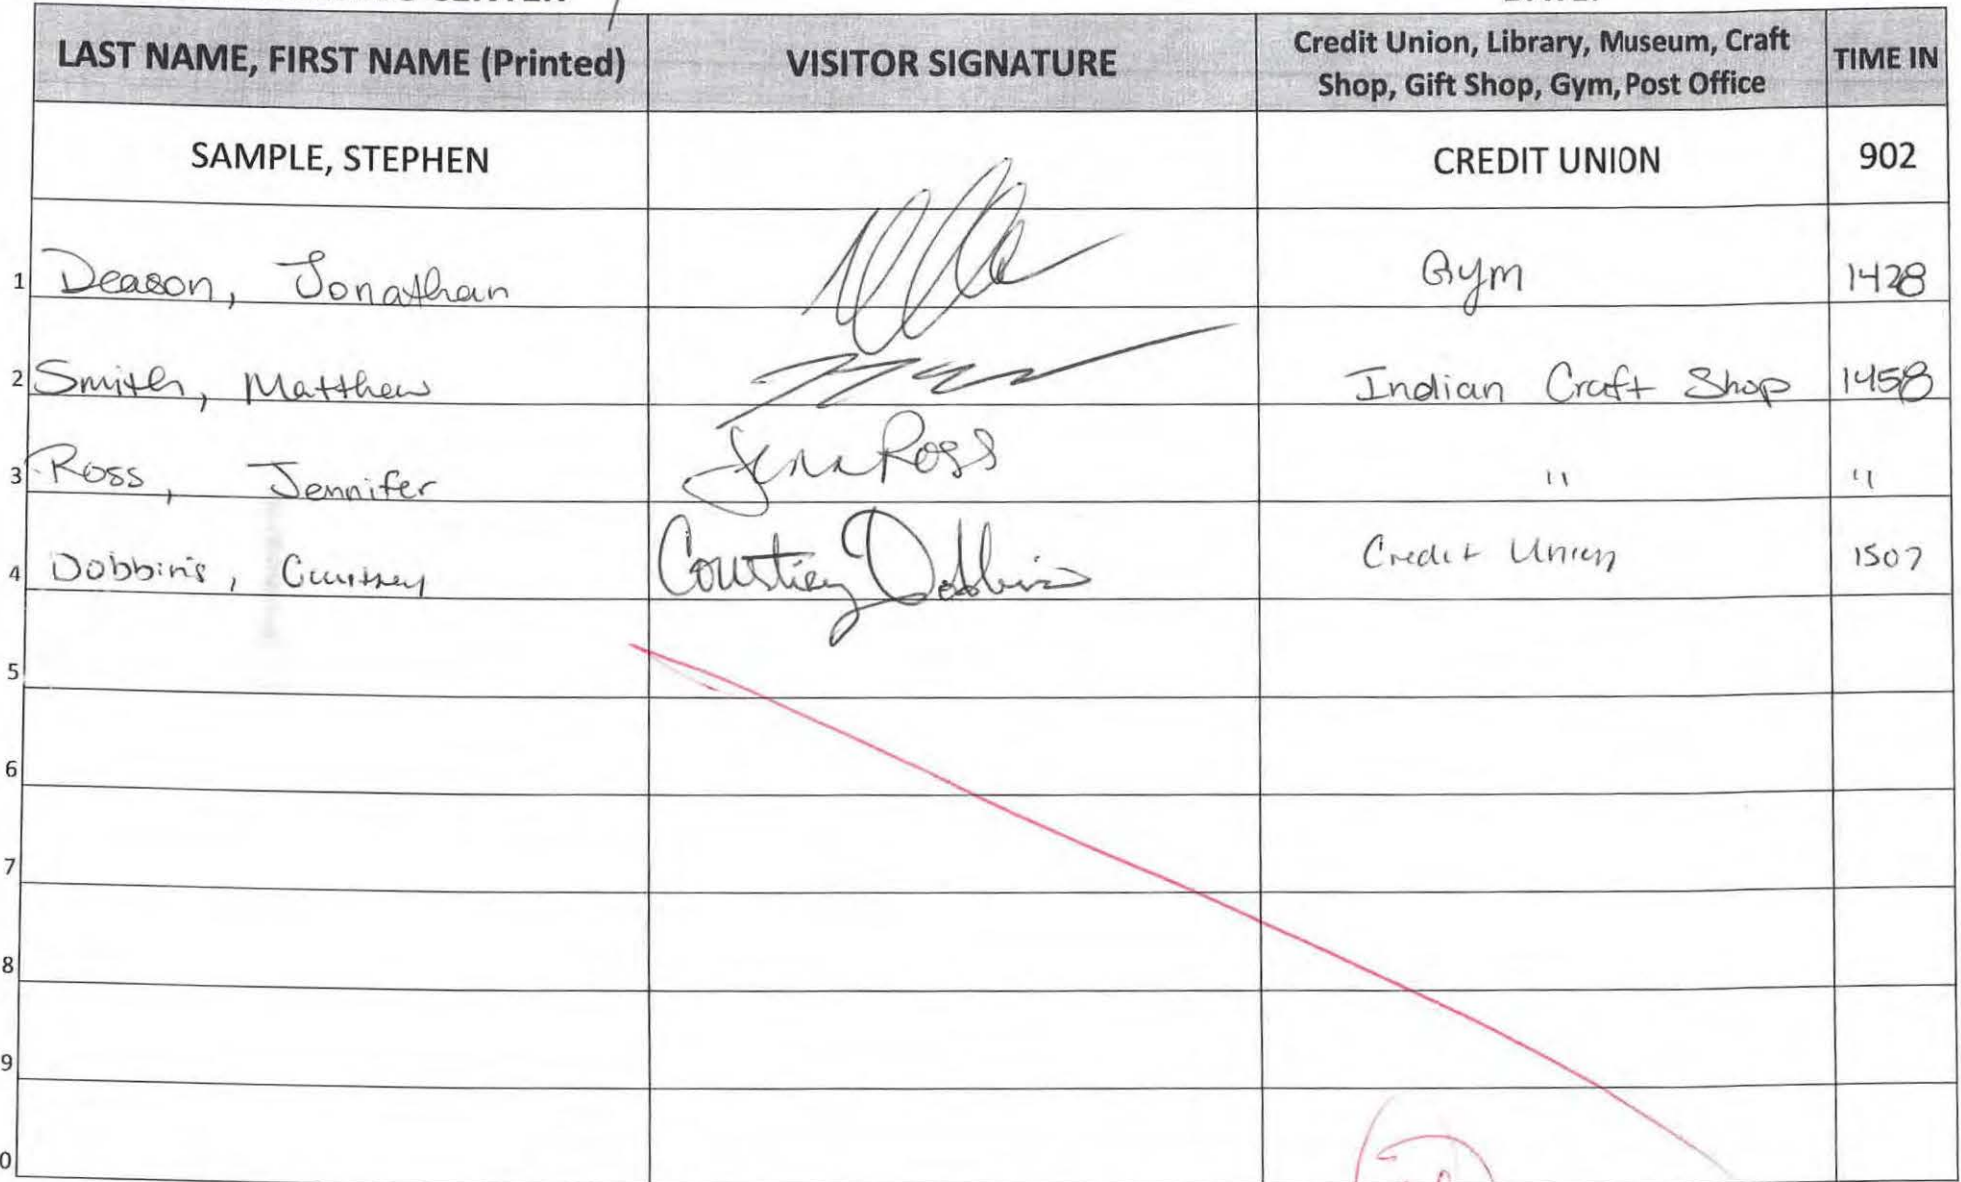 LAST NAME, FIRST NAME (Printed) VISITOR SIGNATURE Credit Union, Library, Museum, Craft Shop, Gift Shop, Gym, Post Office TIME IN
SAMPLE, STEPHEN CREDIT UNION 902
1 Deason, Jonathan Gym 1428
2 Smith, Matthew Indian Craft Shop 1458
3 Ross, Jennifer Jenn Ross " "
4 Dobbins, Courtney Courtney Dobbins Credit Union 1507
5
6
7
8
9
0